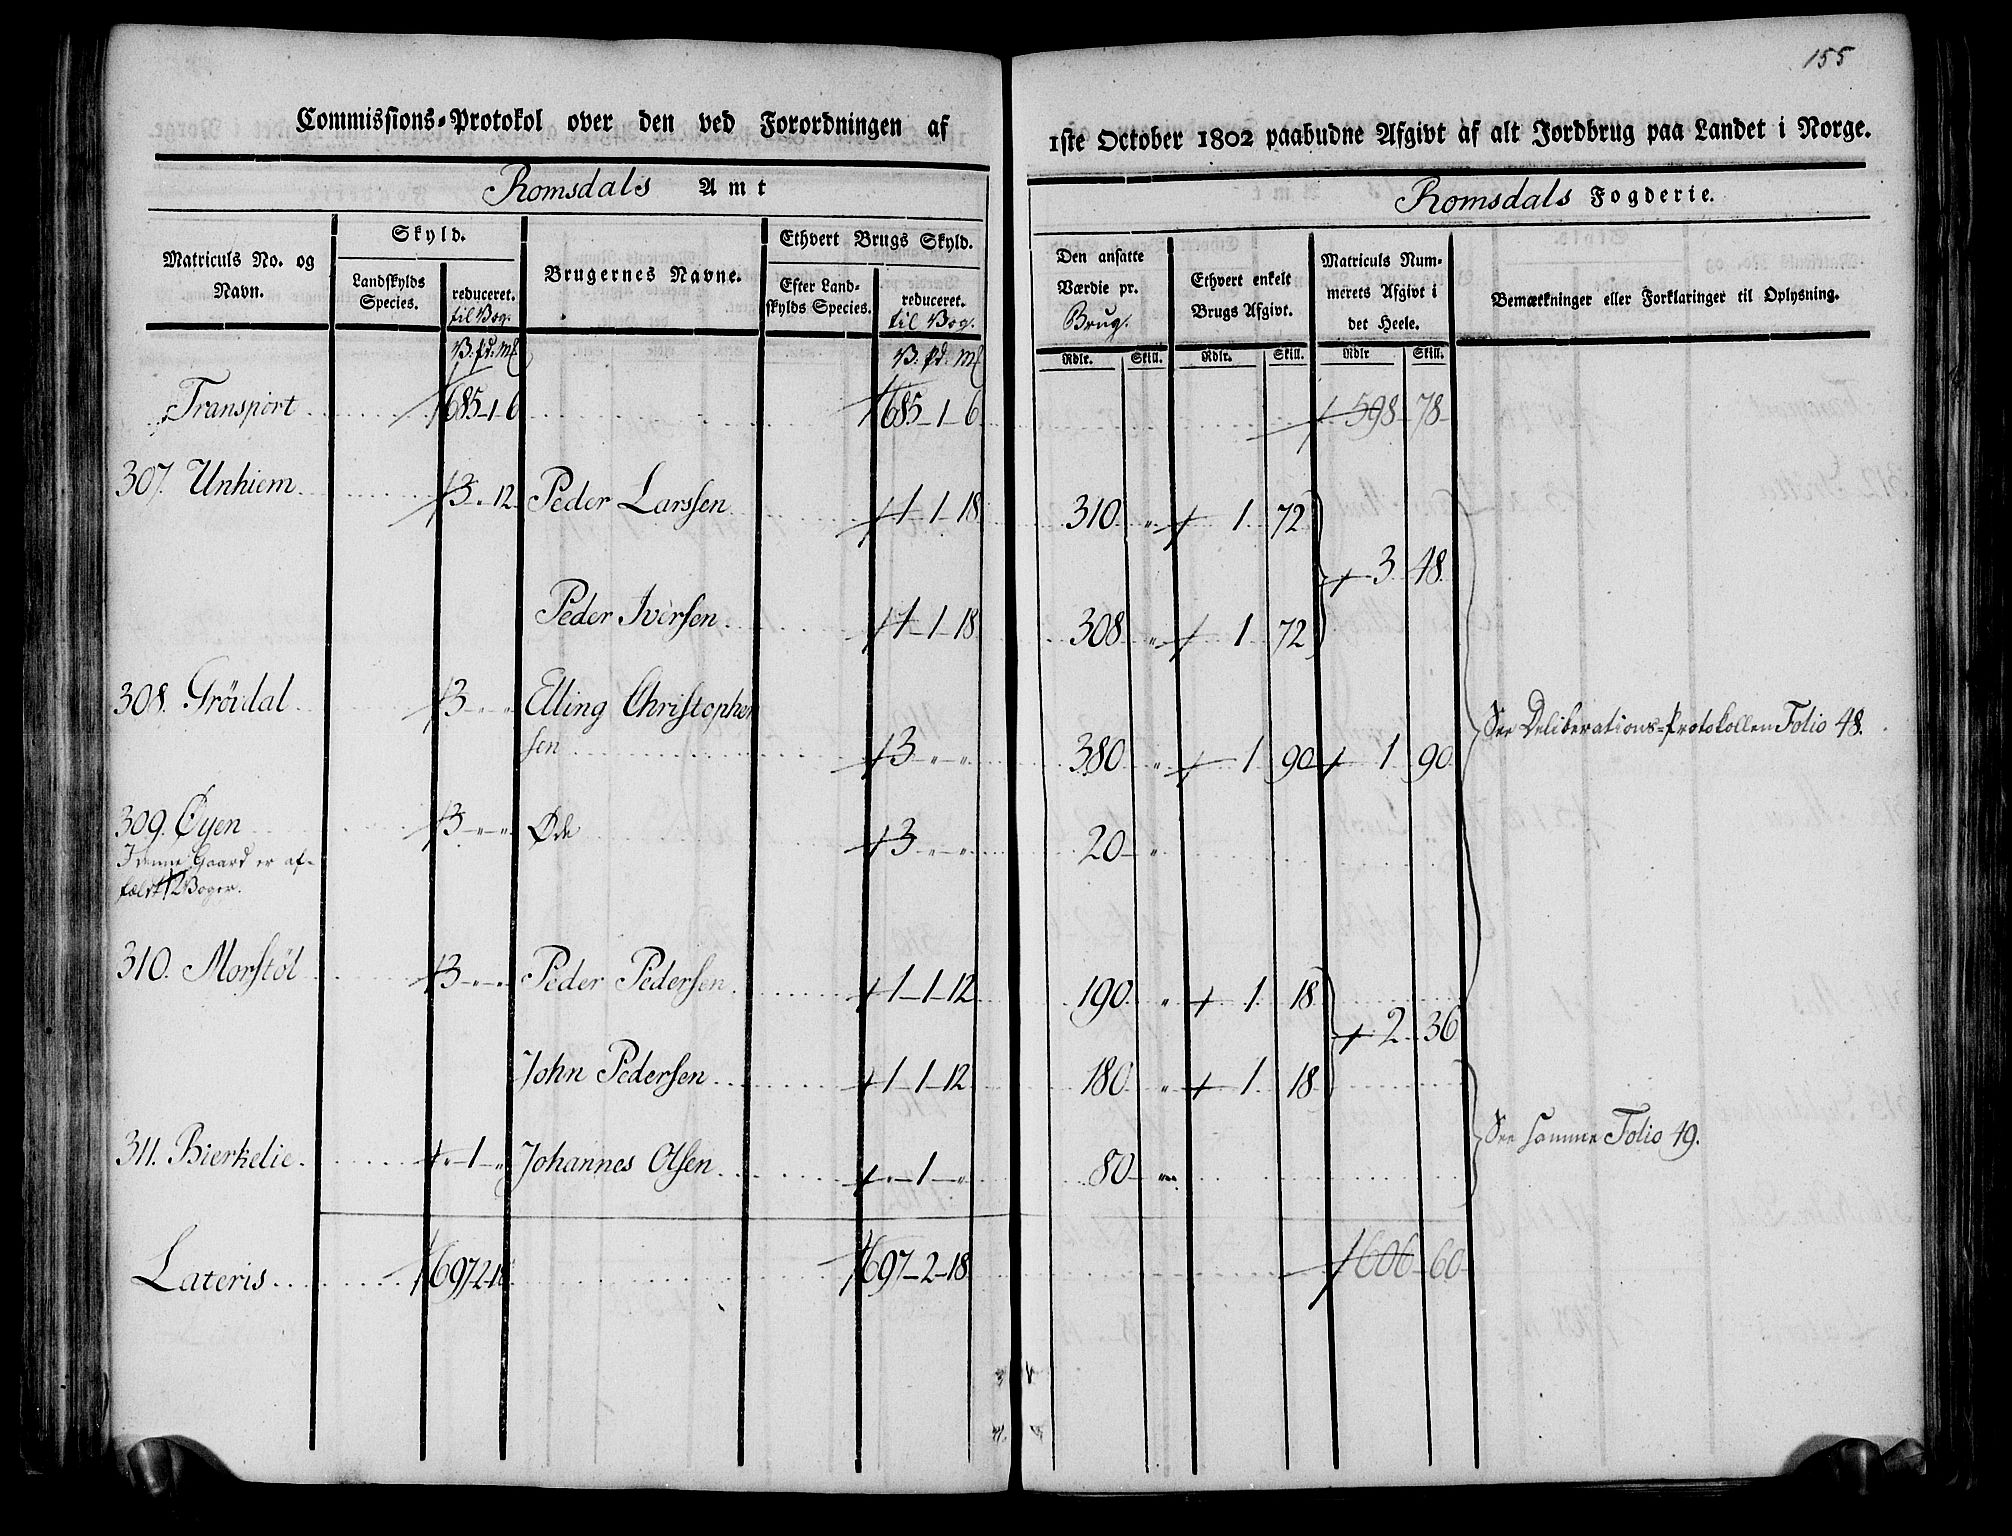 155
Commissions-Protokol over den ved Forordningen af
1ste October 1802 paabudne Afgivt af alt Jordbrug paa Landet i Norge.
Romsdals Amt
Romsdals Fogderie.
Matriculs No. og Navn.
Skyld.
Landskylds Species.
reduceret. til Vog.
Brugernes Navne.
Ethvert Brugs Skyld.
Efter Landskylds Species.
reduceret. til Vog.
Den ansatte Værdie pr. Brug.
Ethvert enkelt Brugs Afgivt.
Matriculs Nummerets Afgivt i det Heele.
Bemærkninger eller Forklaringer til Oplysning.
V. pd. mk V. pd. mk Rdlr. Skill. Rdlr. Skill. Rdlr Skill.
Transport 685-1-6 685-1-6 598-78
307. Unhiem 3 " 12 Peder Larssen 1-1-18 310 " 1 72
3 48
Peder Iversen 1-1-18 308 " 1 72
308. Gröidal 3 " " Elling Christophersen 3 " " 380 " 1 90 1 90
See Deliberations-Protokollen Folio 48.
309. Øyen 3 " " Øde 3 " " 20 "
I denne Gaard er af-
fældt 2 Voger.
310. Morstöl 3 " " Peder Pedersen 1-1-12 190 " 1 18
2 36
John Pedersen 1-1-12 180 " 1 18
311. Bierkelie " 1 " Johannes Olsen " 1 " 80 "
See samme Folio 49.
Lateris 697-2-18 697-2-18 606-60